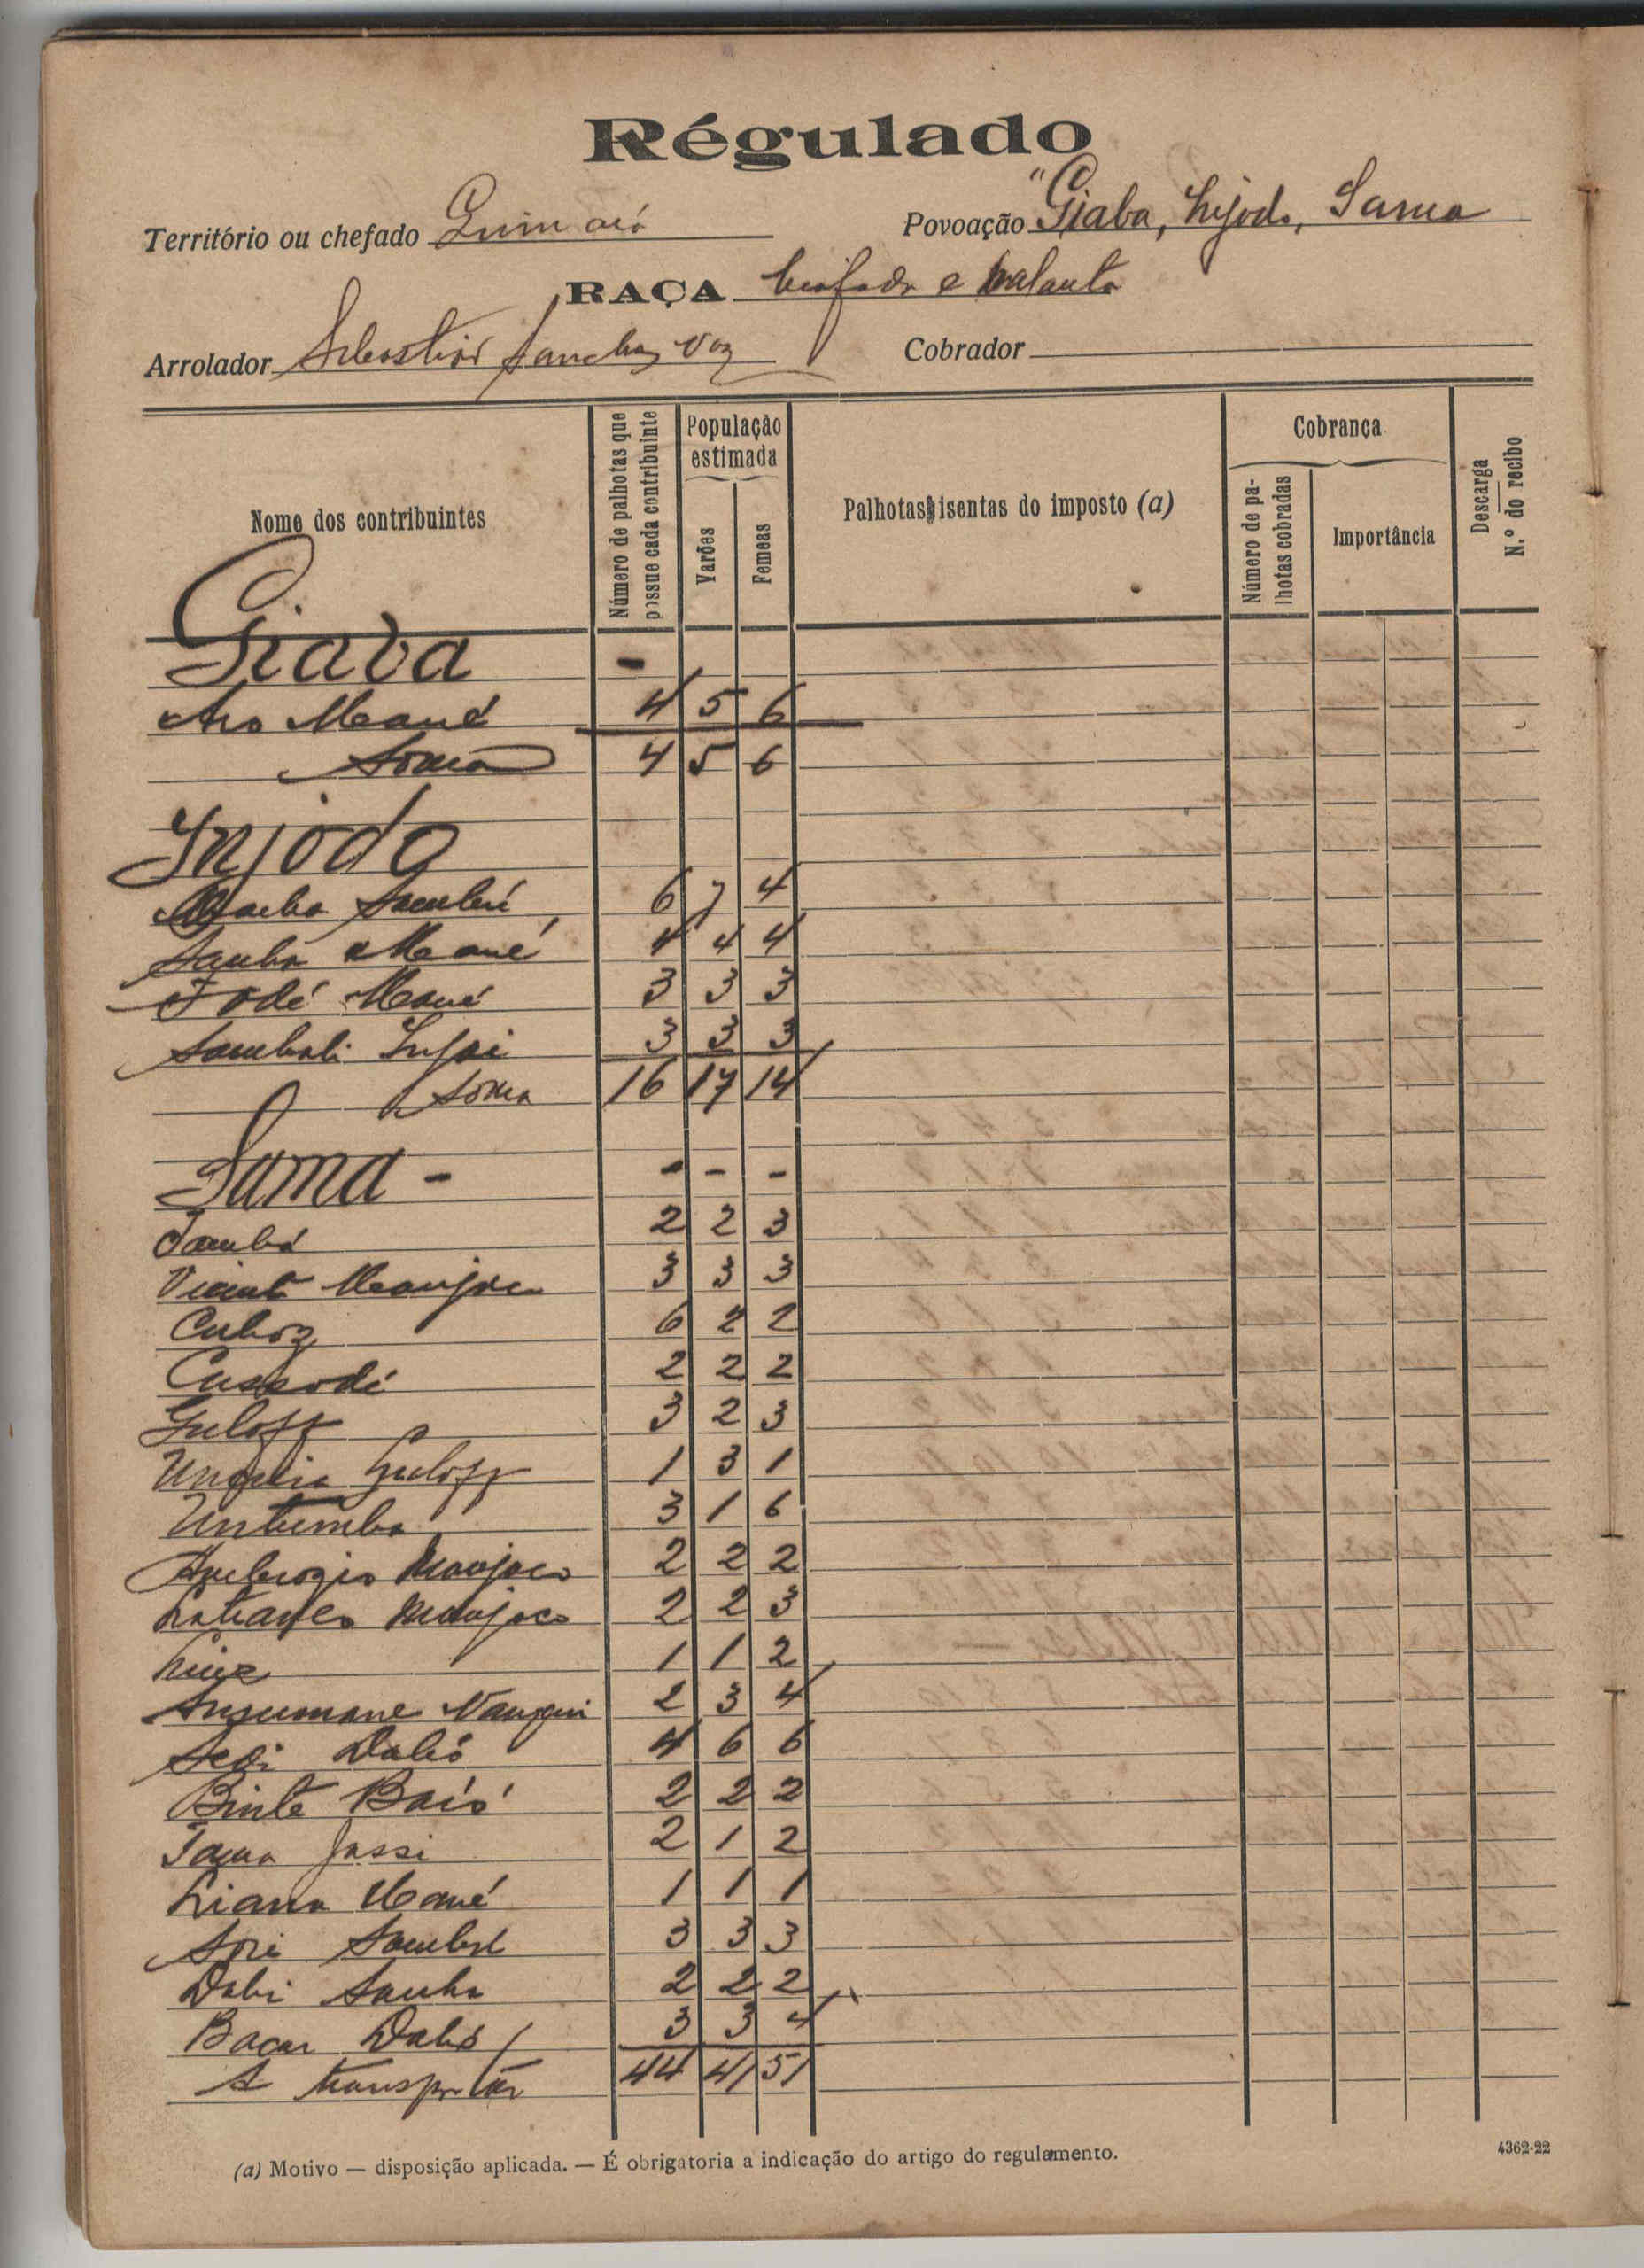 Régulado
Território ou chefado
Povoação "Giaba, Injodo, Sama
RAÇA biafada e balanta
Arrolador Sebastião Sanches Vaz
Cobrador
Nome dos contribuintes
Número de palhotas que possue cada contribuinte
População estimada
Varões
Femeas
Palhotas isentas do imposto (a)
Cobrança
Número de palhotas cobradas
Importância
Descarga
N.º do recibo
Giaba -
Mané 4 5 6
Soma 4 5 6
Injodo
6 7 4
Sanha Mané 4 4 4
Fodé Mané 3 3 3
Sambali Injai 3 3 3
Soma 16 17 14
Sama - - - -
2 2 3
Vicente Manjaco 3 3 3
6 2 2
2 2 2
Guloff 3 2 3
Guloff 1 3 1
Untumba 3 1 6
Ambrozio Manjaco 2 2 2
Manjaco 2 2 3
Luiz 1 1 2
Ansumane 2 3 4
Dabó 4 6 6
Binte Baió 2 2 2
Jassi 2 1 2
Mané 1 1 1
3 3 3
Dabi Sanha 2 2 2
Bacar Dabó 3 3 4
A transportar 44 41 51
(a) Motivo — disposição aplicada. — É obrigatoria a indicação do artigo do regulamento.
4362-22